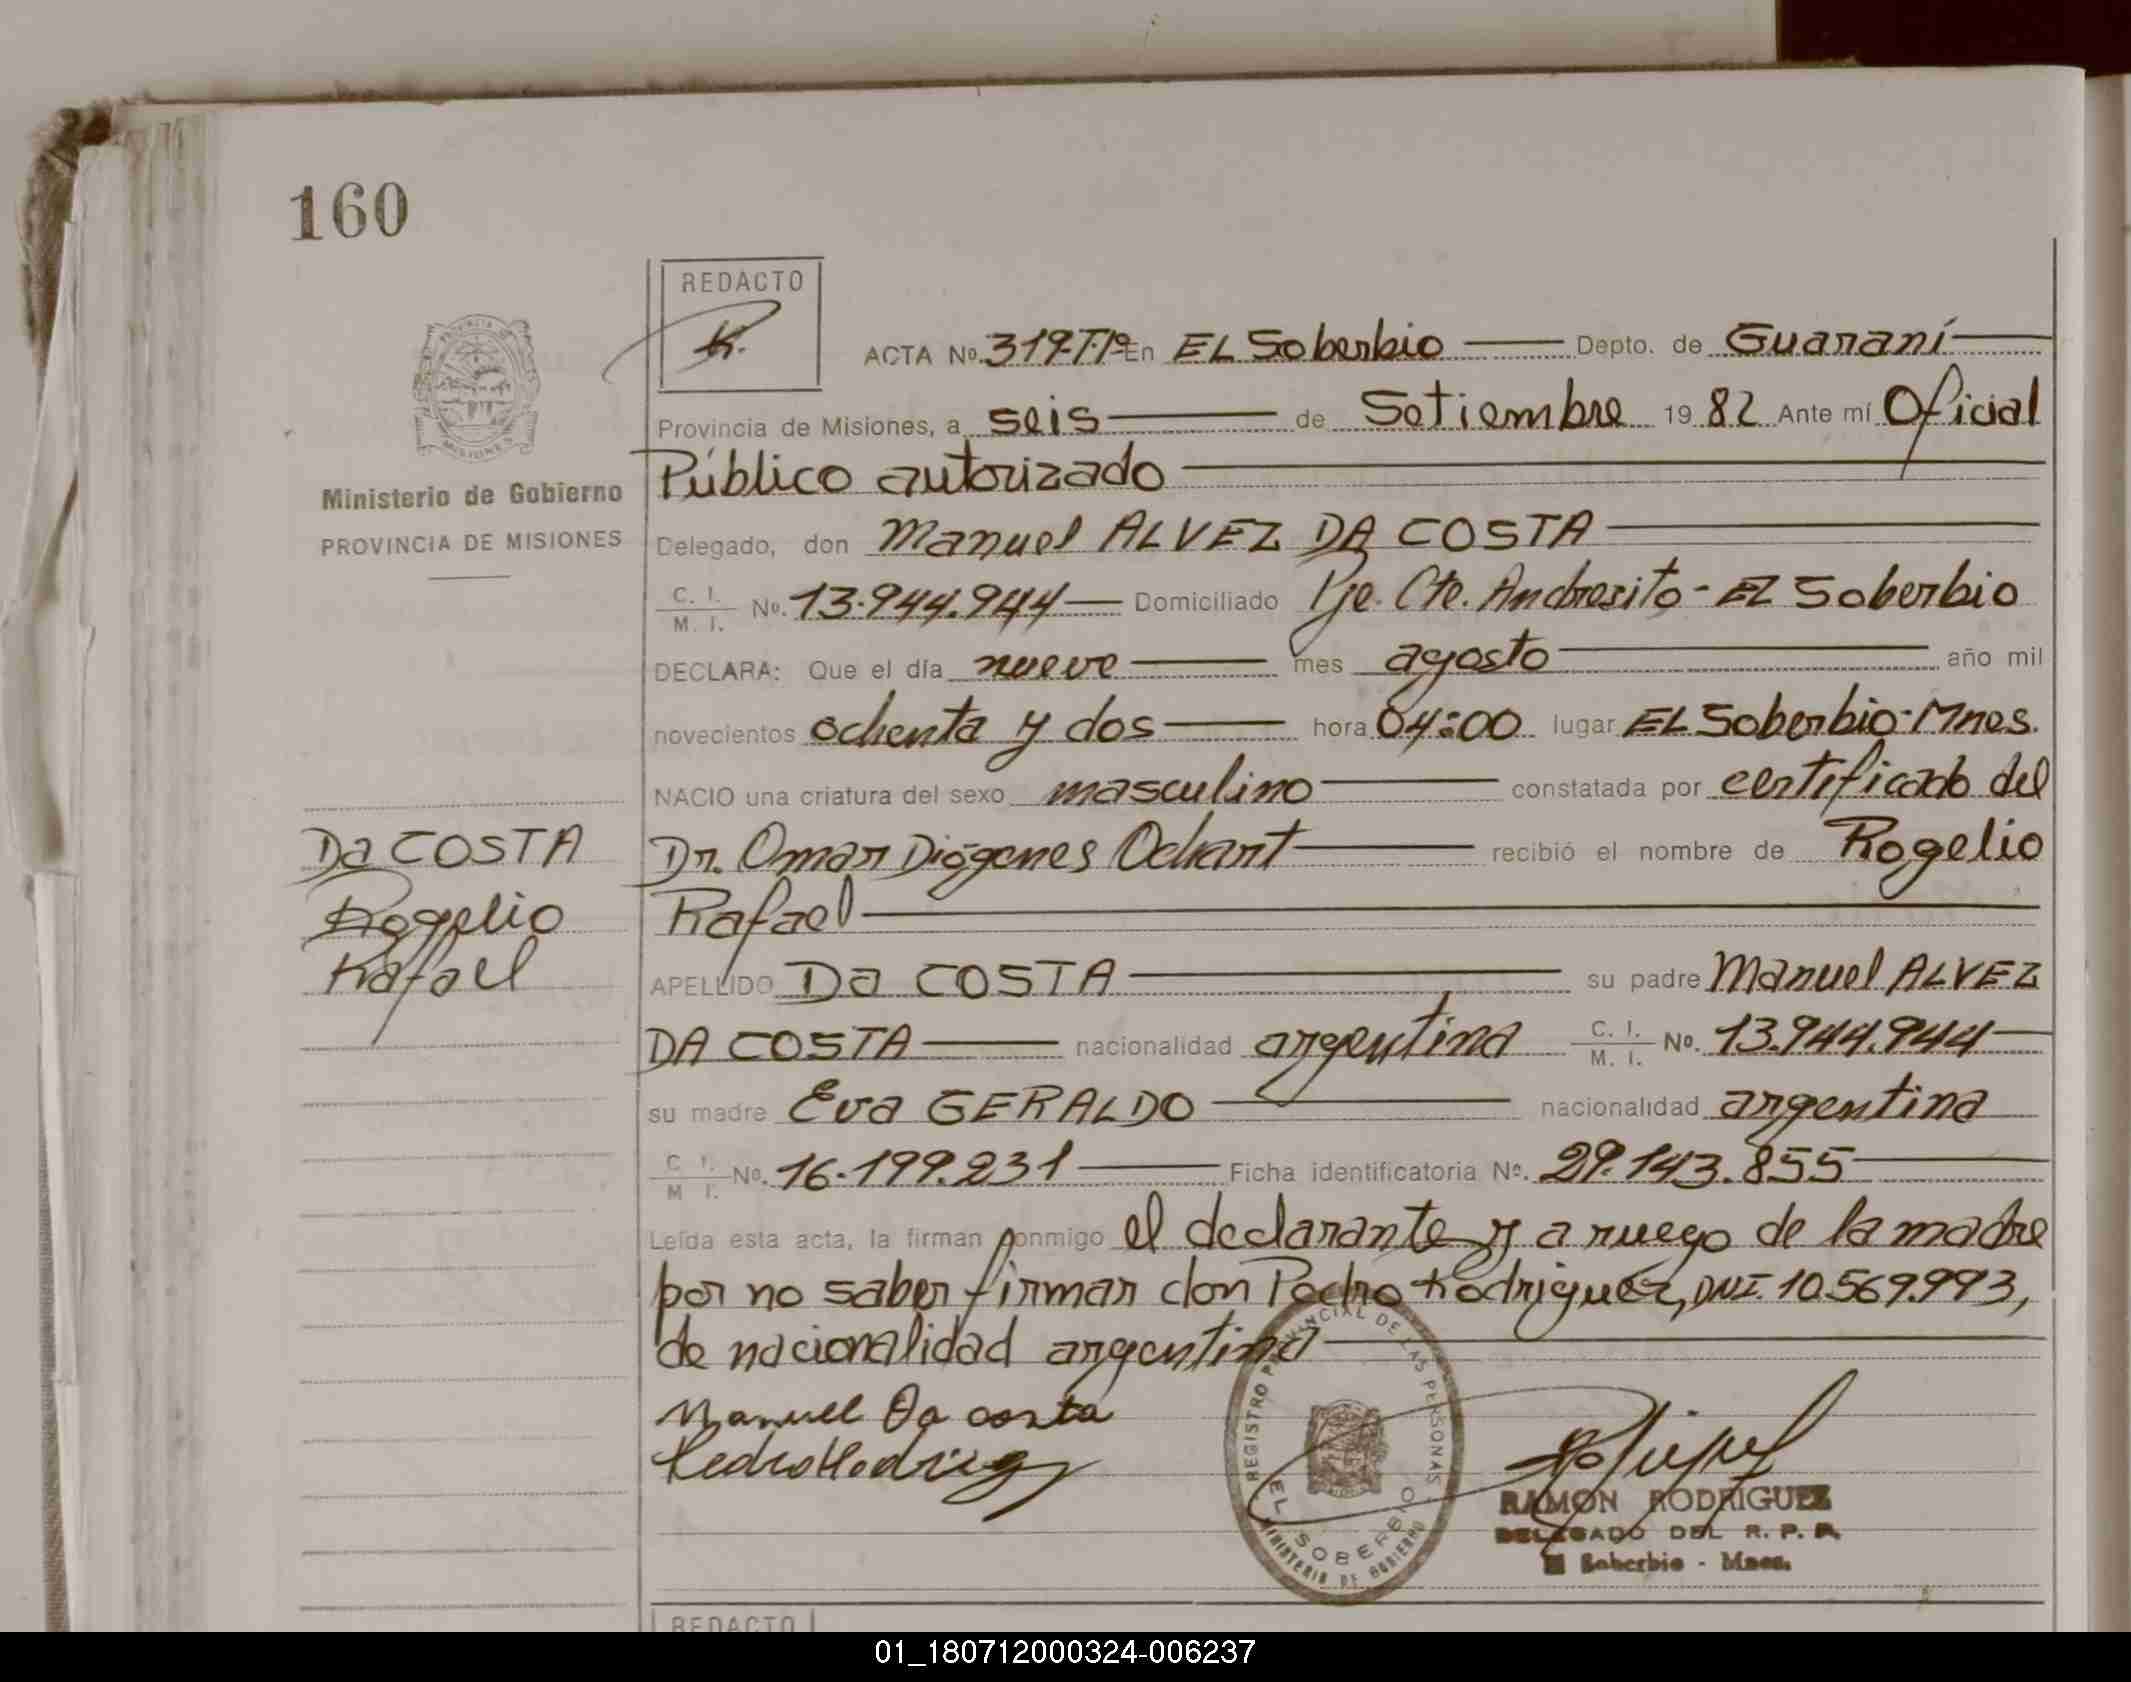 160
REDACTO
ACTA Nº 319-Tº1º En EL Soberbio Depto. de Guaraní
Provincia de Misiones, a seis de Setiembre 19 82 Ante mí Oficial
Público autorizado
Ministerio de Gobierno
PROVINCIA DE MISIONES
Delegado, don Manuel ALVEZ DA COSTA
C. I. M. I. Nº. 13.944.944 Domiciliado Pje. Cte. Andresito - EL Soberbio
DECLARA: Que el día nueve mes agosto año mil
novecientos ochenta y dos hora 04:00 lugar EL Soberbio-Mnes.
NACIO una criatura del sexo masculino constatada por certificado del
Dr. Omar Diógenes Ochart recibió el nombre de Rogelio
Rafael
Da COSTA
Rogelio
Rafael
APELLIDO Da COSTA su padre Manuel ALVEZ
DA COSTA nacionalidad argentina C. I. M. I. Nº. 13.944.944
su madre Eva GERALDO nacionalidad argentina
C. I. M. I. Nº. 16.199.231 Ficha identificatoria Nº. 29.143.855
Leída esta acta, la firman conmigo el declarante y a ruego de la madre
por no saber firmar don Pedro Rodriguez, DNI. 10.569.993,
de nacionalidad argentina
Manuel Da costa
Pedro Rodrigez
REGISTRO PROVINCIAL DE LAS PERSONAS
EL SOBERBIO
MINISTERIO DE GOBIERNO
RAMON RODRIGUEZ
DELEGADO DEL R. P. P.
El Soberbio - Mnes.
REDACTO
01_180712000324-006237